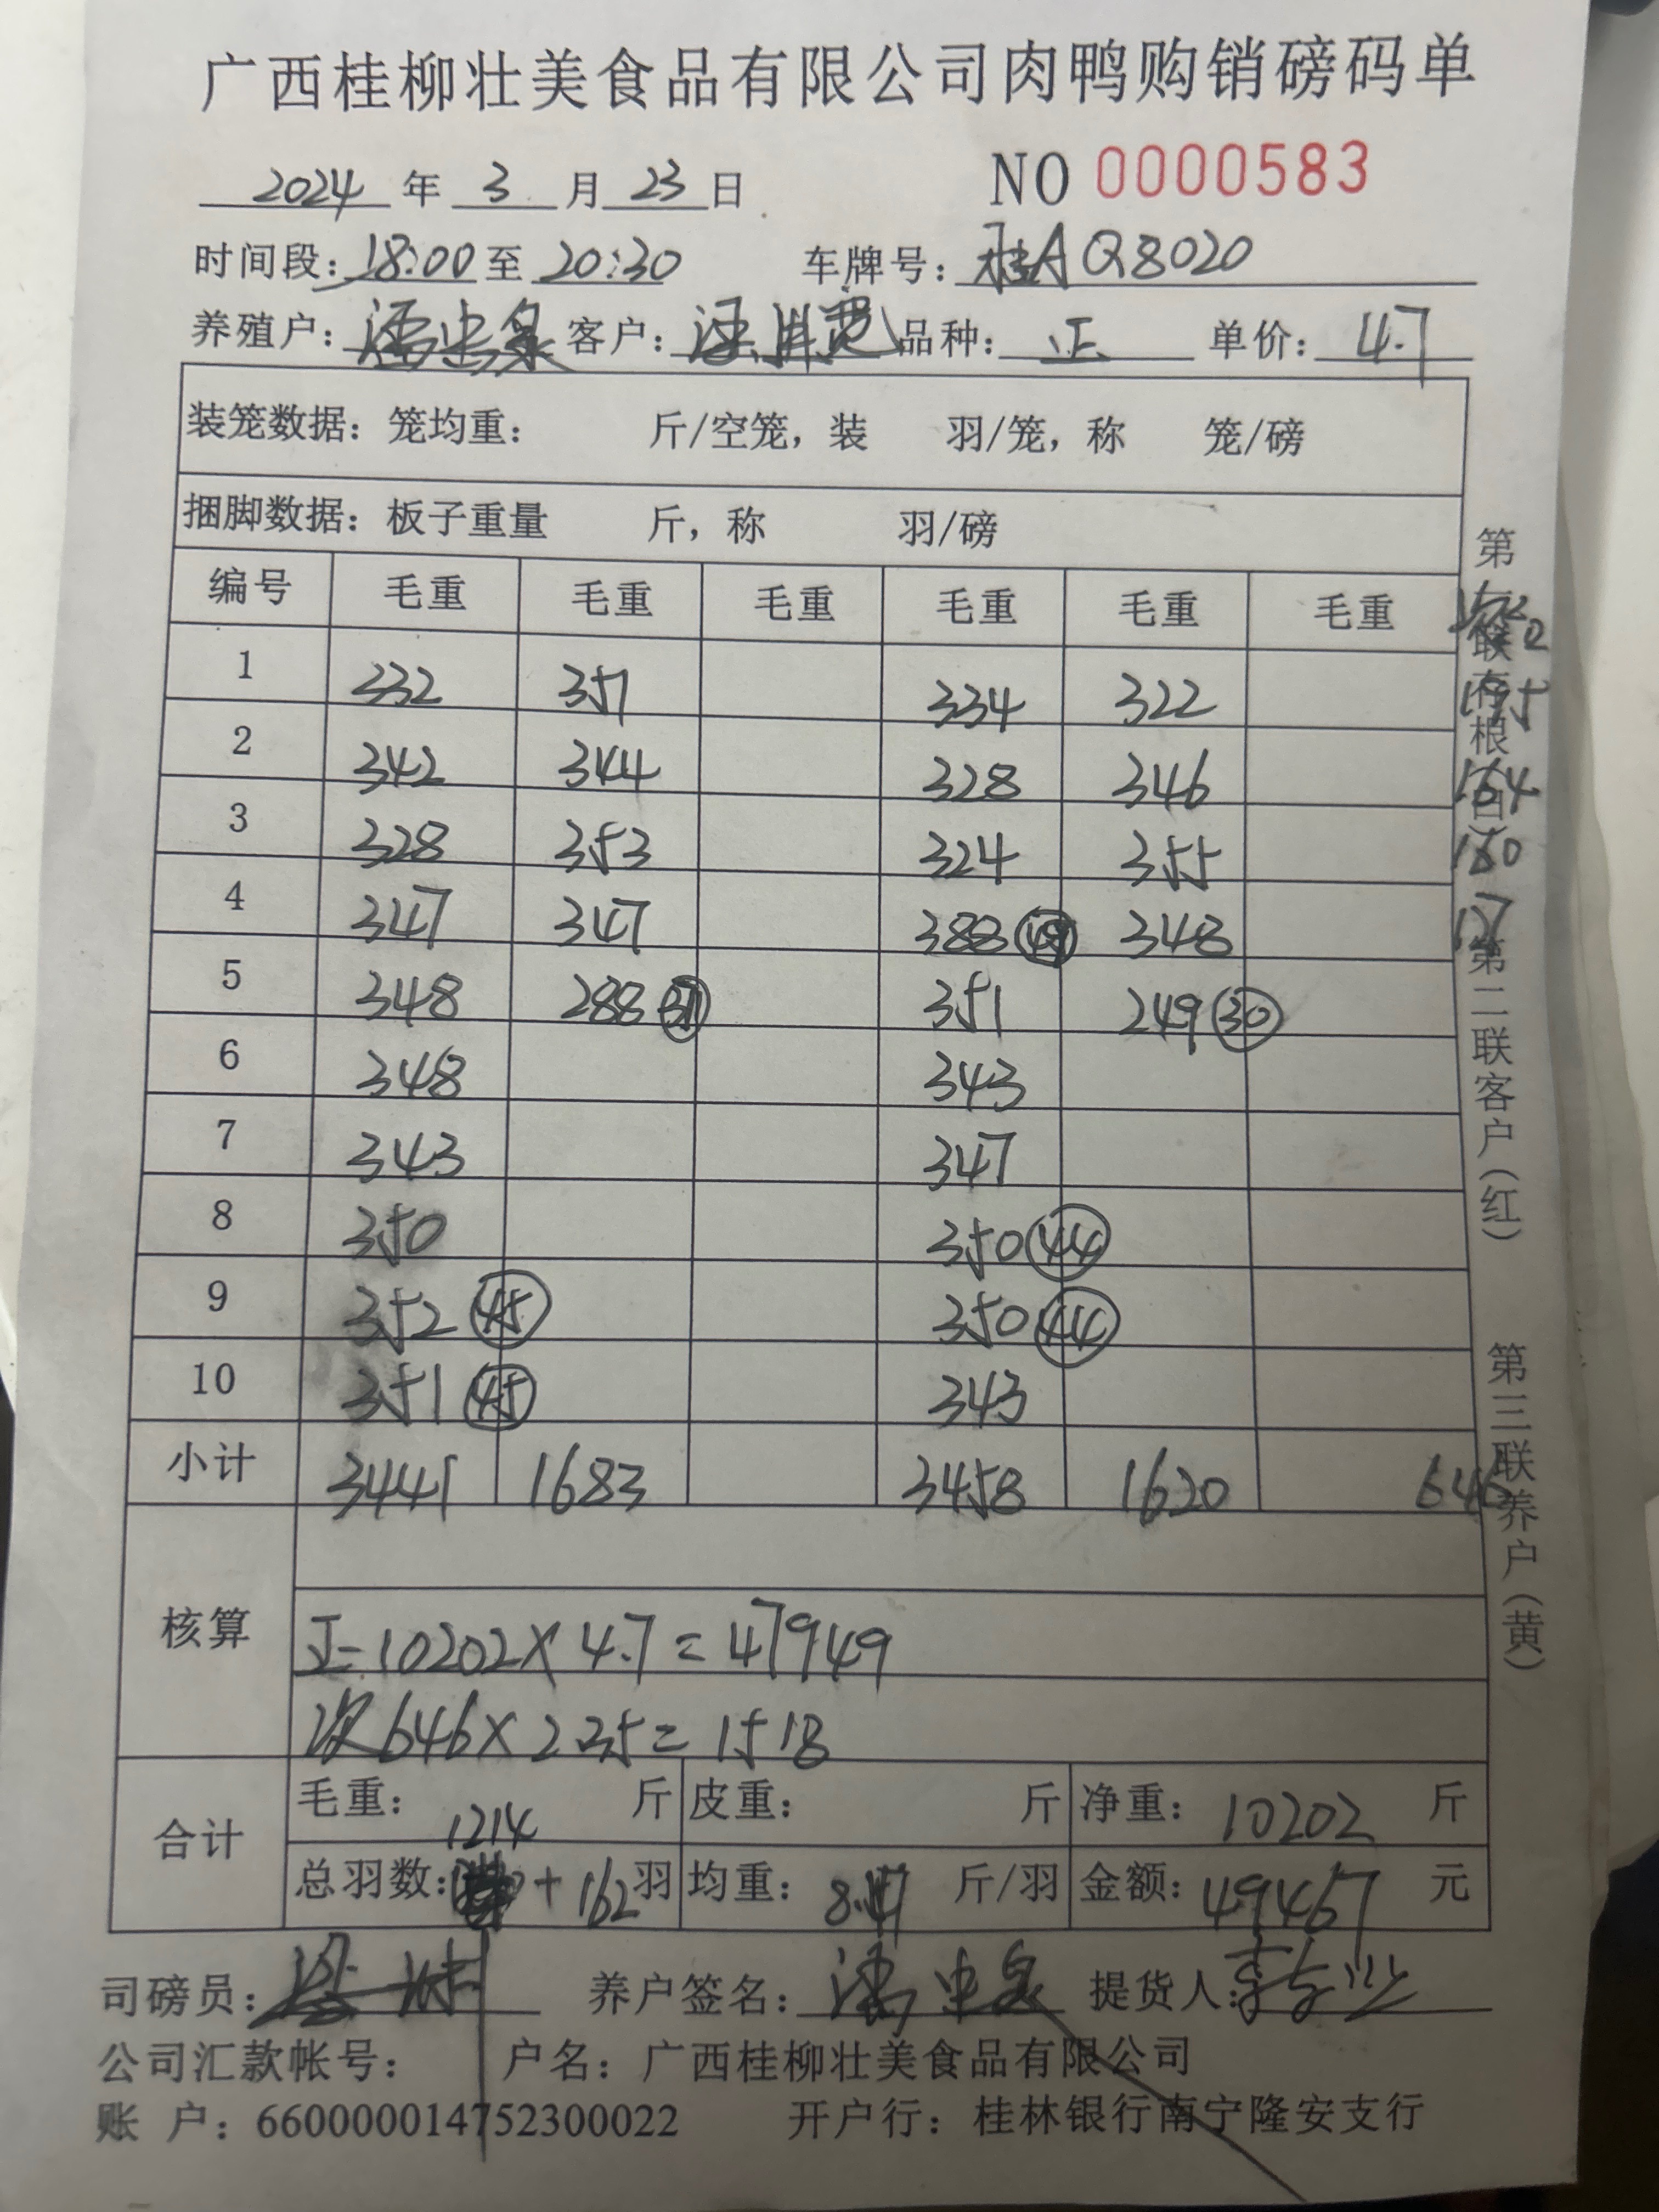 广西桂柳壮美食品有限公司肉鸭购销磅码单
2024年3月23日 NO 0000583
时间段：18:00至20:30 车牌号：桂AQ8020
养殖户： 客户： 品种：正 单价：4.7
装笼数据：笼均重： 斤/空笼，装 羽/笼，称 笼/磅
捆脚数据：板子重量 斤，称 羽/磅
编号 毛重 毛重 毛重 毛重 毛重 毛重
1 332 351 334 322
2 342 344 328 346
3 328 353 324 355
4 347 347 388 348
5 348 288 351 249 30
6 348 343
7 343 347
8 350 350 44
9 352 45 350 44
10 351 45 343
小计 3441 1683 3458 1620 646
核算
正=10202×4.7=47949
次646×2.35=1518
合计 毛重： 斤 皮重： 斤 净重：10202斤
1214
总羽数：+162羽 均重： 斤/羽 金额：49467元
司磅员： 养户签名： 提货人：
公司汇款帐号： 户名：广西桂柳壮美食品有限公司
账 户：660000014752300022 开户行：桂林银行南宁隆安支行
164
第二联客户（红）
第三联养户（黄）